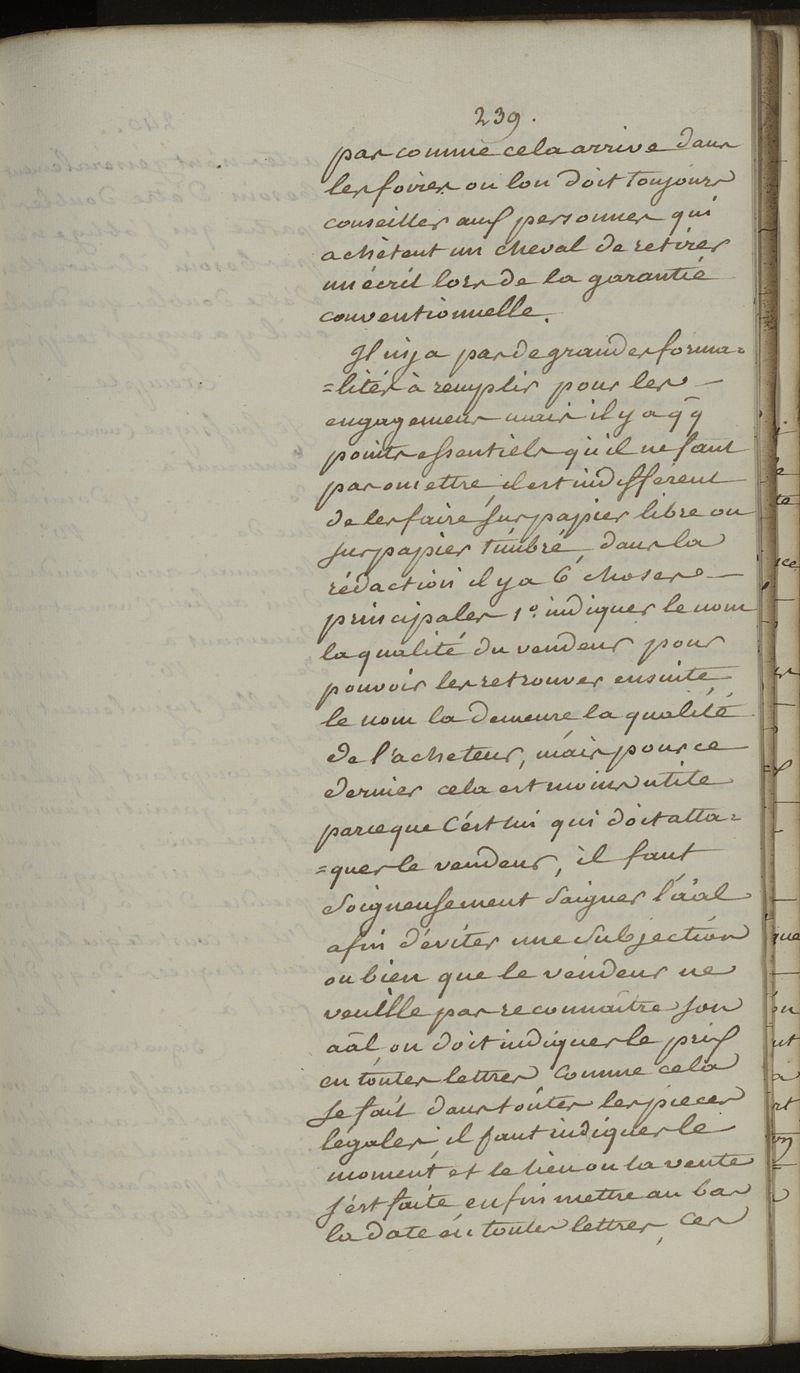 239.
pas comme cela arrive dans
les foires ou lon doit toujours
conseiller aux personnes qui
achètent un cheval de retirer
un écrit lors de la garantie
conventionnelle.
Il n'ÿ a pas de grandes forma=
=lités à remplir pour les
engagemens mais il y a qq
points essentiels qu'il ne faut
pas omettre, il est indifférent
de les faire sur papier libre ou
sur papier timbré, dans la
rédaction il y a 6 choses
principales 1° indiquer le nom
la qualité du vendeur pour
pouvoir les retrouver ensuite
le nom la demeure la qualité
de l'acheteur, mais pour ce
dernier cela est moins utile
parceque c'est lui qui doit atta=
=quer le vendeur, il faut
soigneusement saigner l'aâl
afin d'éviter une subjection
ou bien que le vendeur ne
veuille pas reconnaître son
aâl on doit indiquer le prix
en toutes lettres comme cela
se fait dans toutes les pieces
légales, il faut indiquer le
moment et le lieu ou la vente
s'est faite enfin mettre au bas
la date en toutes lettres, ces